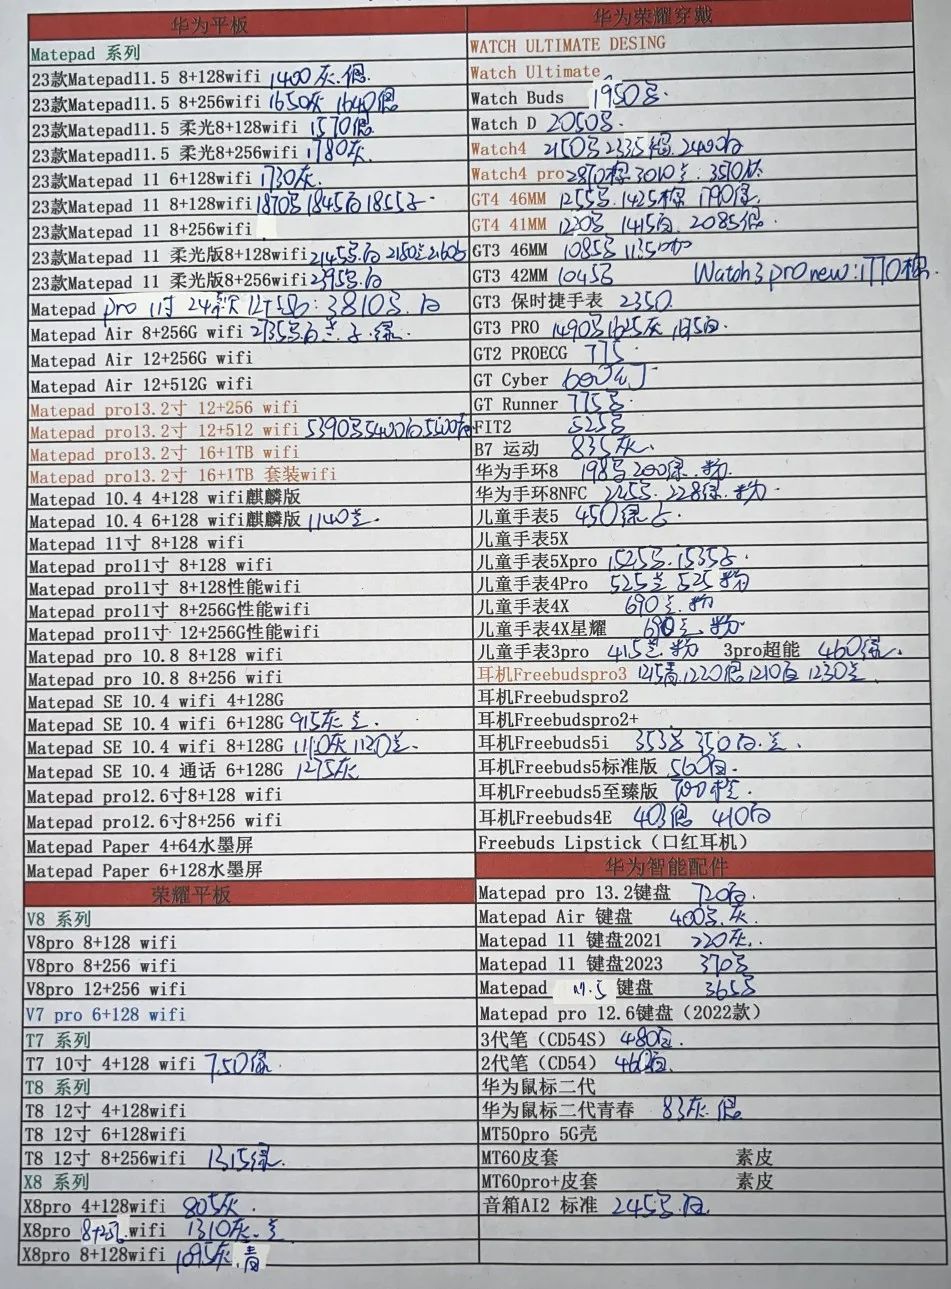 华为平板
Matepad 系列
23款Matepad11.5 8+128wifi 1400灰.
23款Matepad11.5 8+256wifi 1650灰 1640
23款Matepad11.5 柔光8+128wifi 1570
23款Matepad11.5 柔光8+256wifi 1780灰.
23款Matepad 11 6+128wifi 1730灰.
23款Matepad 11 8+128wifi 1870 1845白 1855
23款Matepad 11 8+256wifi
23款Matepad 11 柔光版8+128wifi 2145 白 2180 2160
23款Matepad 11 柔光版8+256wifi 2395 白
Matepad pro 11寸 24款 12+256: 3810 白
Matepad Air 8+256G wifi 绿.
Matepad Air 12+256G wifi
Matepad Air 12+512G wifi
Matepad pro13.2寸 12+256 wifi
Matepad pro13.2寸 12+512 wifi 5390 5400白 5500
Matepad pro13.2寸 16+1TB wifi
Matepad pro13.2寸 16+1TB 套装wifi
Matepad 10.4 4+128 wifi麒麟版
Matepad 10.4 6+128 wifi麒麟版 1140
Matepad 11寸 8+128 wifi
Matepad pro11寸 8+128 wifi
Matepad pro11寸 8+128性能wifi
Matepad pro11寸 8+256G性能wifi
Matepad pro11寸 12+256G性能wifi
Matepad pro 10.8 8+128 wifi
Matepad pro 10.8 8+256 wifi
Matepad SE 10.4 wifi 4+128G
Matepad SE 10.4 wifi 6+128G 915灰
Matepad SE 10.4 wifi 8+128G 1110灰 1120
Matepad SE 10.4 通话 6+128G 1275灰
Matepad pro12.6寸8+128 wifi
Matepad pro12.6寸8+256 wifi
Matepad Paper 4+64水墨屏
Matepad Paper 6+128水墨屏
荣耀平板
V8 系列
V8pro 8+128 wifi
V8pro 8+256 wifi
V8pro 12+256 wifi
V7 pro 6+128 wifi
T7 系列
T7 10寸 4+128 wifi 750绿.
T8 系列
T8 12寸 4+128wifi
T8 12寸 6+128wifi
T8 12寸 8+256wifi 1315绿.
X8 系列
X8pro 4+128wifi 805灰.
X8pro 8+256.wifi 1310灰.
X8pro 8+128wifi 1095灰.青
华为荣耀穿戴
WATCH ULTIMATE DESING
Watch Ultimate
Watch Buds 1950
Watch D 2050
Watch4 2150 2335棕. 2400白
Watch4 pro 2870棕 3010 3570钛
GT4 46MM 1255 1425棕 1790绿.
GT4 41MM 1220 1415白 2085
GT3 46MM 1085
GT3 42MM 1045 Watch3 pro new:1770棕
GT3 保时捷手表 2350
GT3 PRO 1490 1625灰
GT2 PROECG 775
GT Cyber 600
GT Runner 775
FIT2 525
B7 运动 835灰.
华为手环8 198 200绿.粉.
华为手环8NFC 225 228绿.粉.
儿童手表5 450绿
儿童手表5X
儿童手表5Xpro 1525 1535
儿童手表4Pro 525 525粉
儿童手表4X 690 粉
儿童手表4X星耀 690 粉
儿童手表3pro 415 粉 3pro超能 460绿.
耳机Freebudspro3 1215青 1220 1210白 1230
耳机Freebudspro2
耳机Freebudspro2+
耳机Freebuds5i 353 350白.
耳机Freebuds5标准版 560白.
耳机Freebuds5至臻版 700
耳机Freebuds4E 403 410白
Freebuds Lipstick（口红耳机）
华为智能配件
Matepad pro 13.2键盘 720白.
Matepad Air 键盘 400 灰.
Matepad 11 键盘2021 220灰.
Matepad 11 键盘2023 370
Matepad 11.5 键盘 365
Matepad pro 12.6键盘（2022款）
3代笔（CD54S） 480白.
2代笔（CD54） 460白.
华为鼠标二代
华为鼠标二代青春 83灰.
MT50pro 5G壳
MT60皮套 素皮
MT60pro+皮套 素皮
音箱AI2 标准 245 白